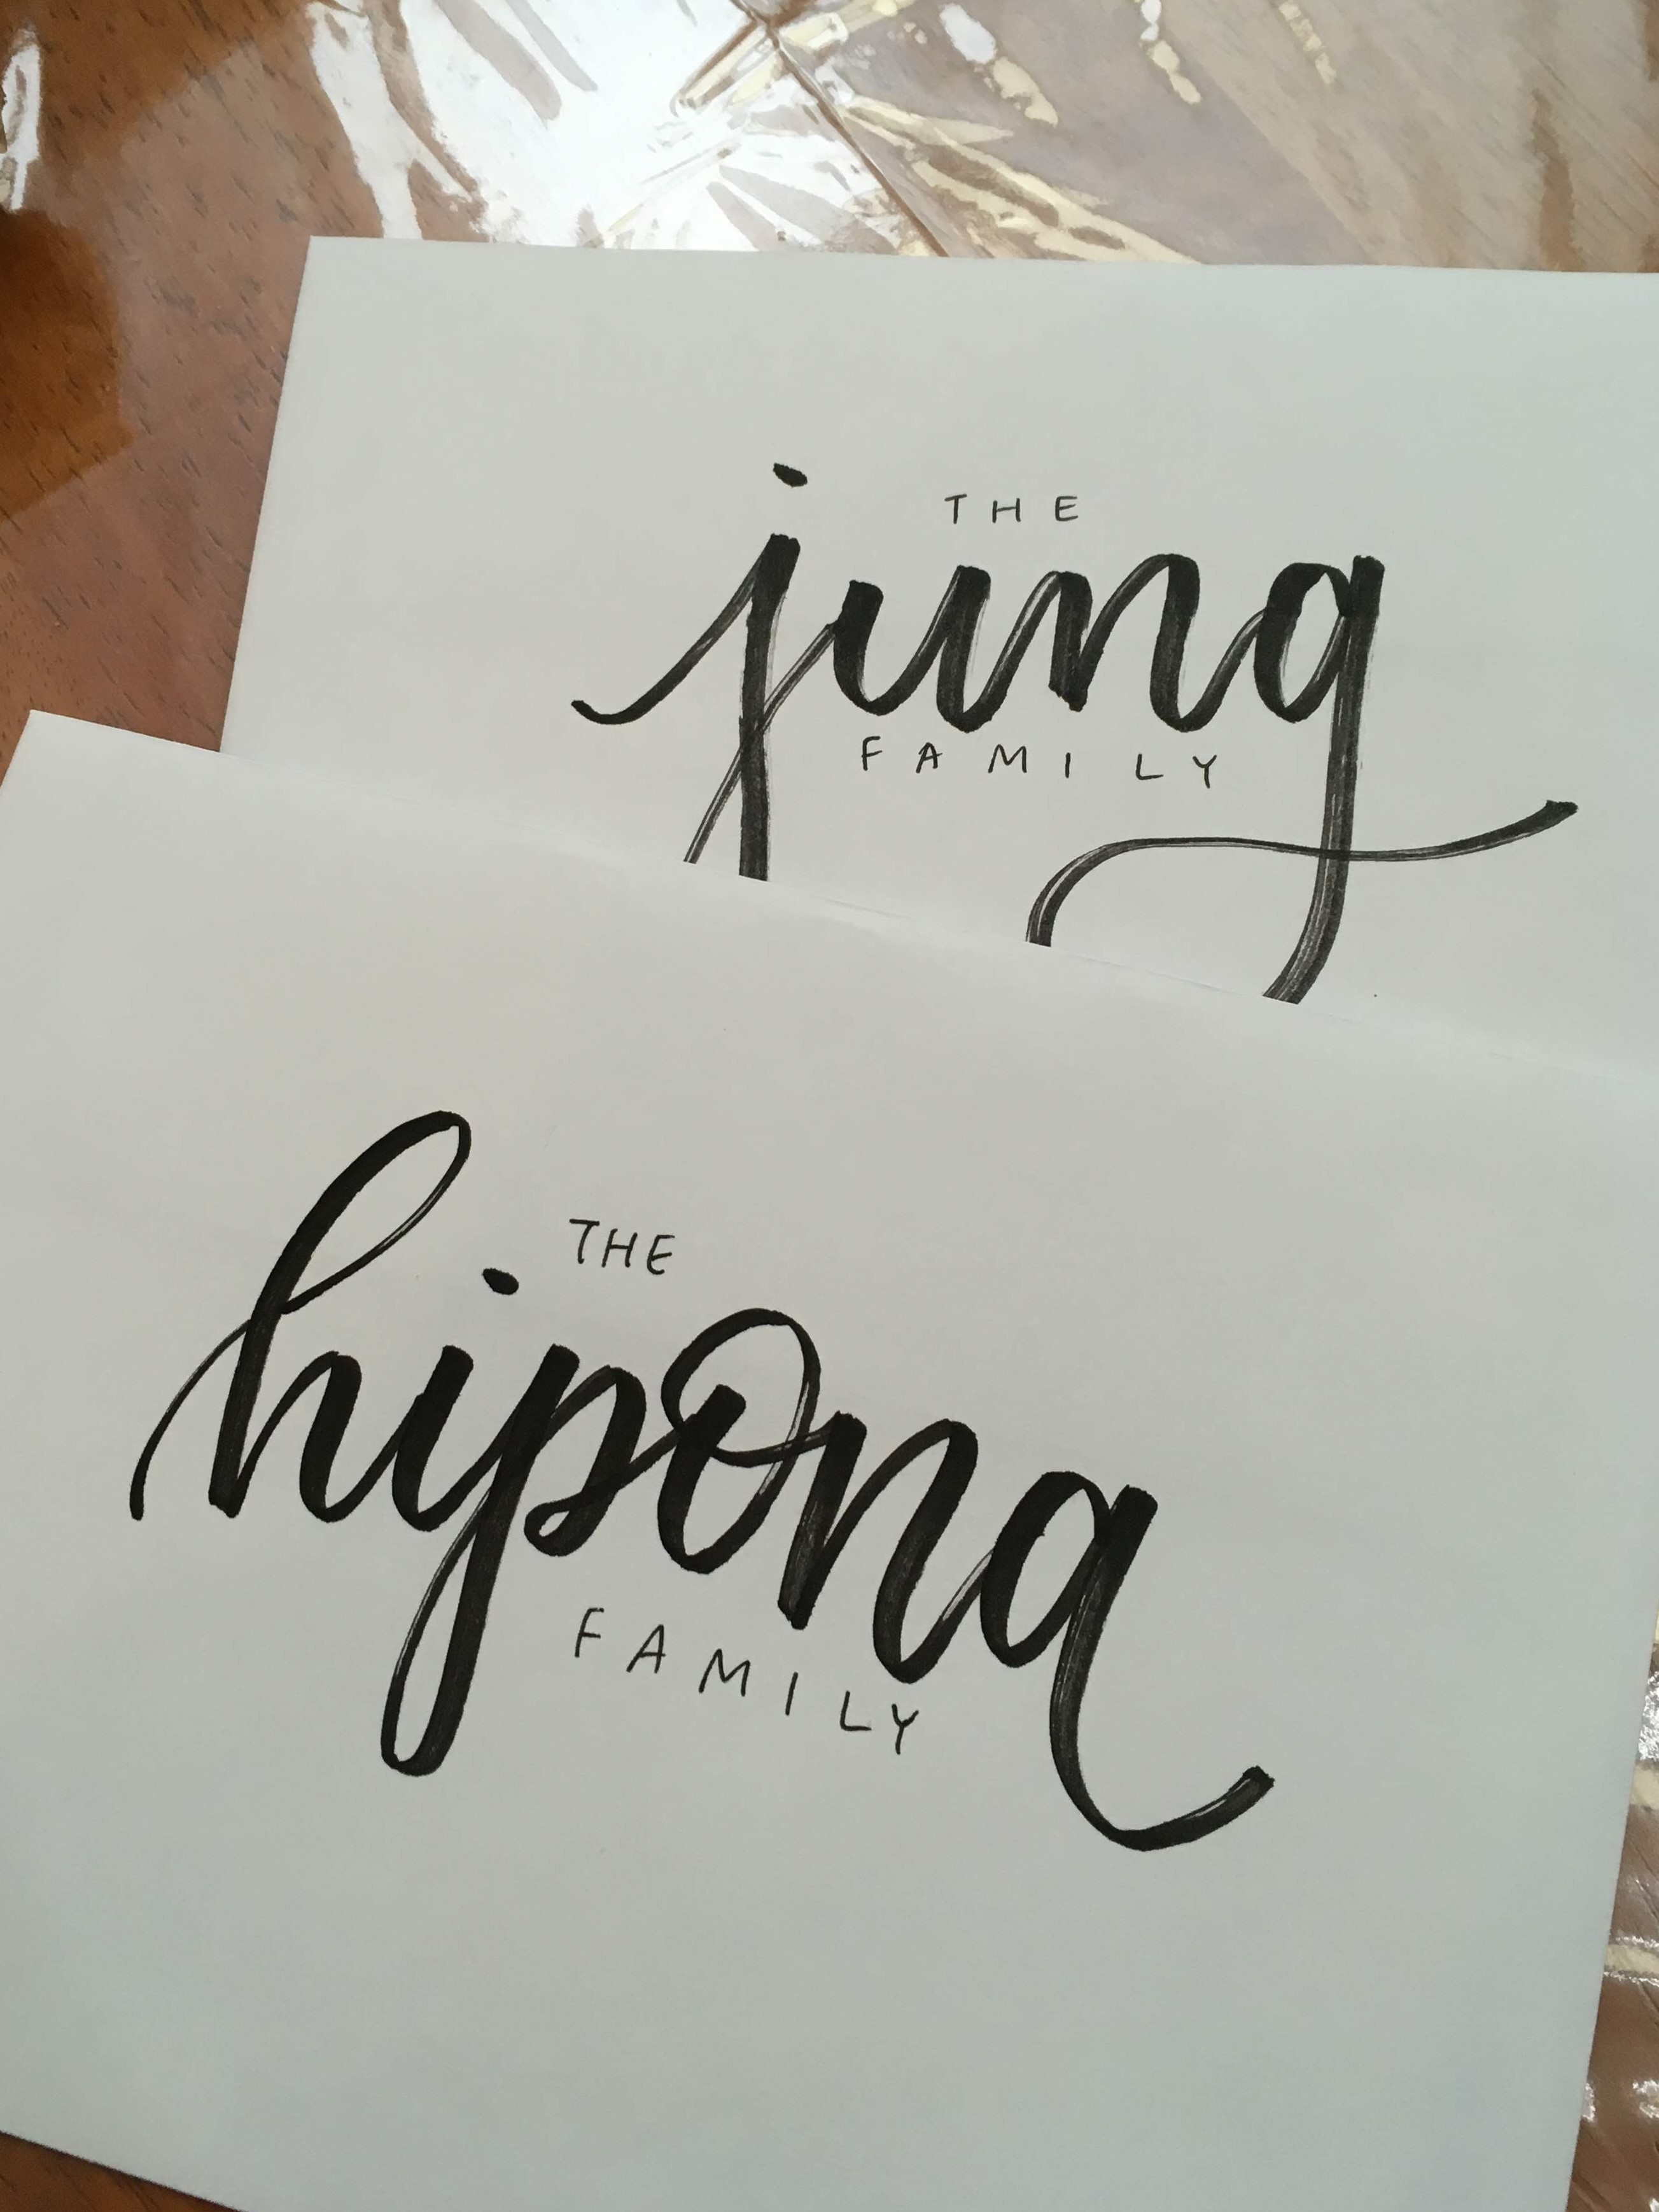 THE
jung
FAMILY
THE
hipona
FAMILY